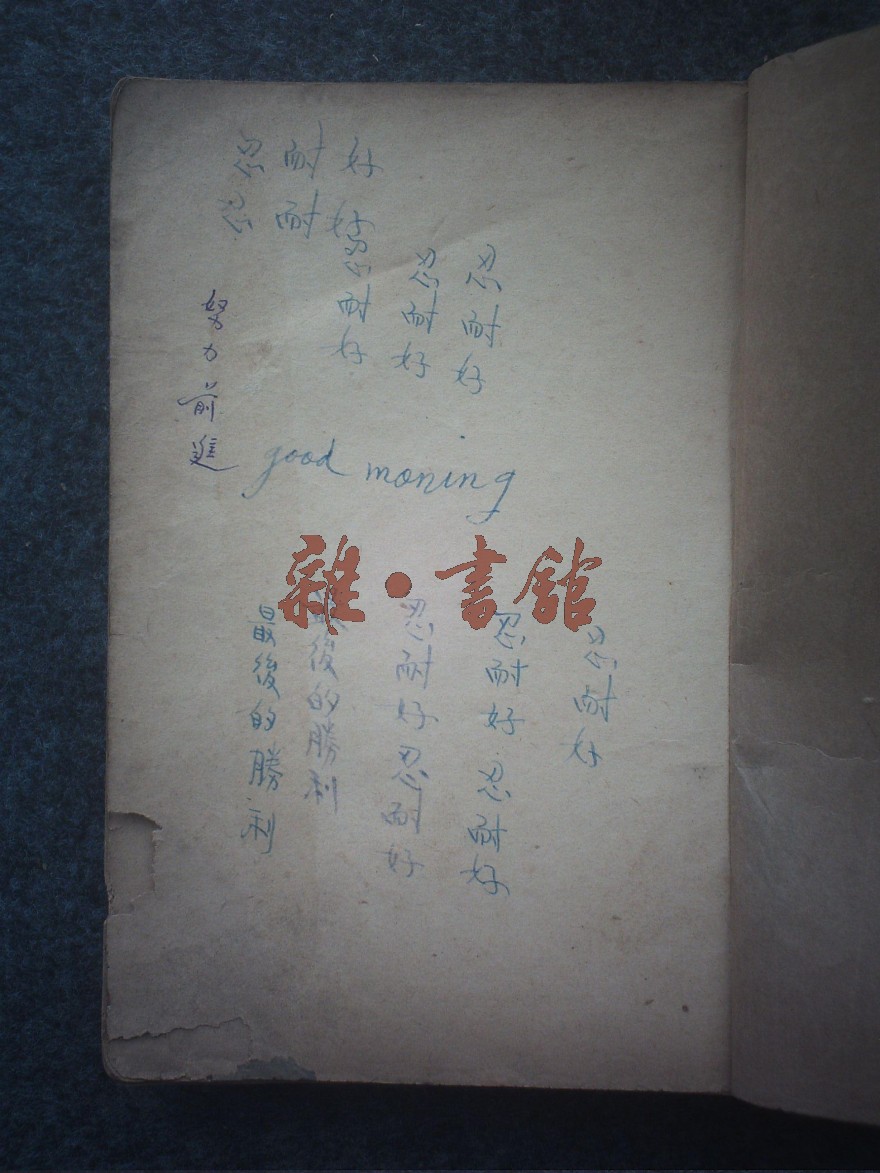 忍耐好
忍耐好
忍耐好
忍耐好
忍耐好
努力前進
good moning
雜·書館
忍耐好
忍耐好 忍耐好
忍耐好忍耐好
最後的勝利
最後的勝利